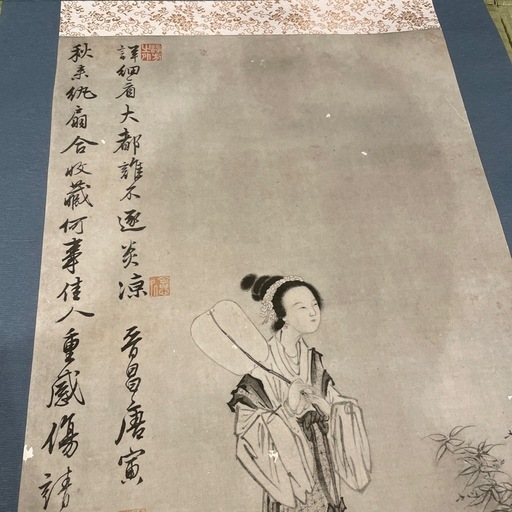 秋来紈扇合收藏何事佳人重感傷請
詳細看大都誰不逐炎涼 晉昌唐寅